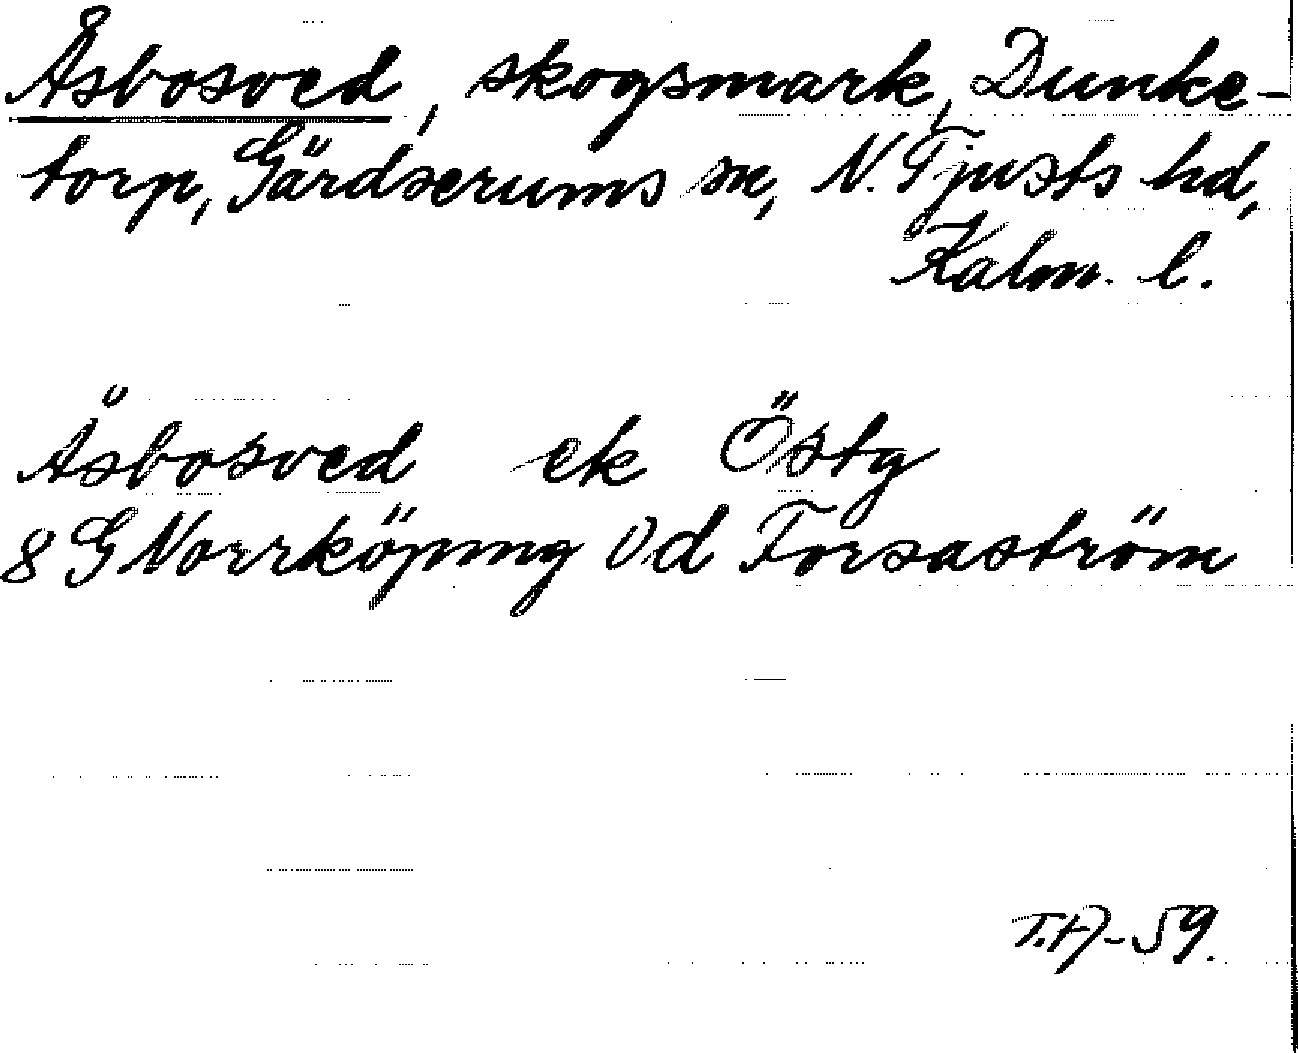 Åsbosved, skogsmark, Dunke-
torp, Gärdserums sn, N. Tjusts hd,
Kalm. l.
Åsbosved ek Östg
8 G Norrköping Vd Forsaström
T.H-59.